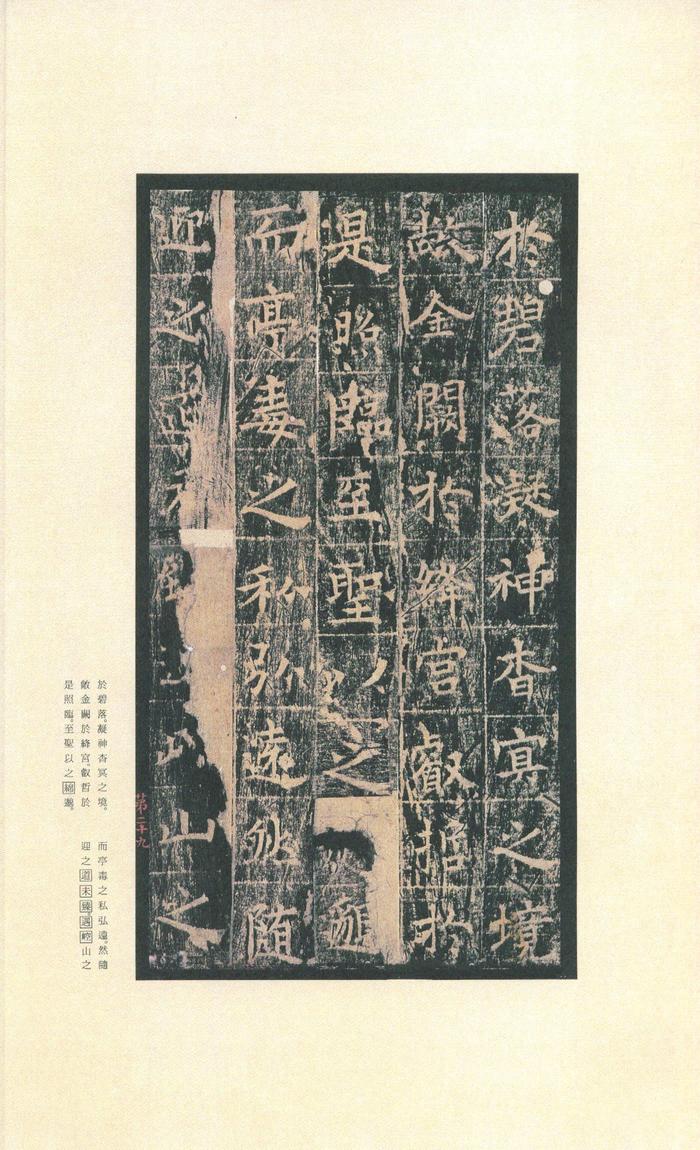 於碧落凝神杳㝠之境
敞金闕於絳宮叡哲於
是照臨至聖以之邈
而亭毒之私弘遠然隨
迎之山之
第二十九
於碧落。凝神杳冥之境。
敞金闕於絳宮。叡哲於
是照臨。至聖以之綿邈。
而亭毒之私弘遠。然隨
迎之道未臻。遇崆山之